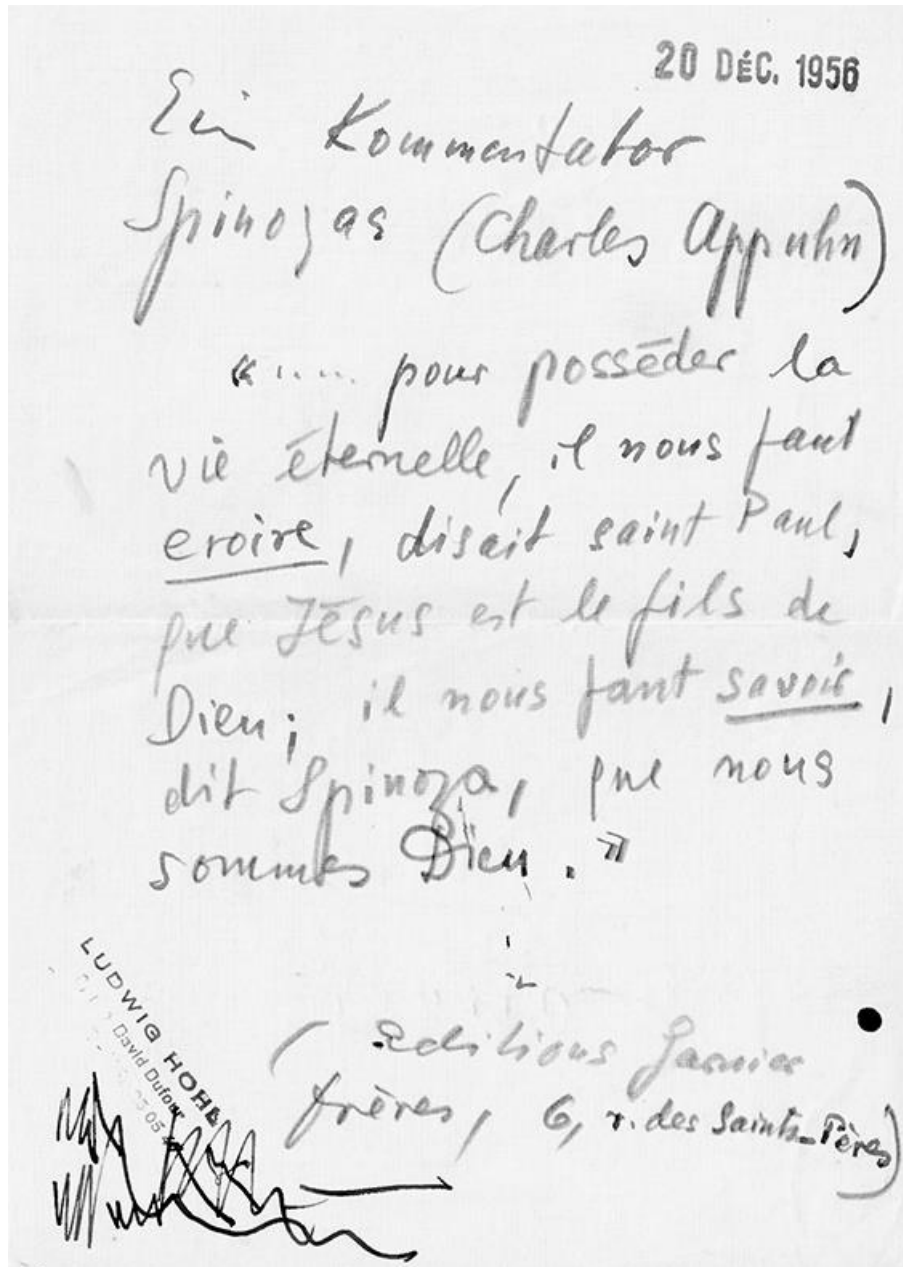 20 DÉC. 1956
Ein Kommentator
Spinozas (Charles Appuhn)
«..... pour posséder la
vie éternelle, il nous faut
croire, disait saint Paul,
que Jésus est le fils de
Dieu; il nous faut savoir,
dit Spinoza, que nous
sommes Dieu.»
(Editions Garnier
frères, 6, r. des Saints-Pères)
LUDWIG HOHL
David Dufour